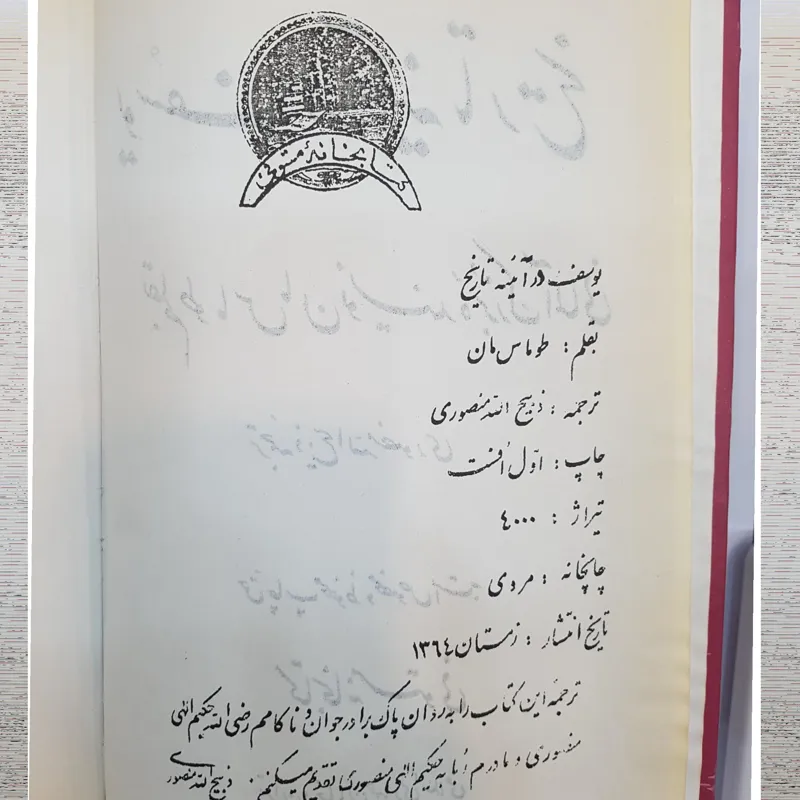 کتابخانهٔ مستوفی
یوسف در آئینه تاریخ
بقلم : طوماس مان
ترجمه : ذبیح الله منصوری
چاپ : اوّل اُفست
تیراژ : ٤٠٠٠
چاپخانه : مروی
تاریخ انتشار : زمستان ١٣٦٤
ترجمهٔ این کتاب را به روان پاک برادر جوان و ناکامم رضی الله حکیم الهی
منصوری و مادرم اُبا به حکیم الهی منصوری تقدیم میکنم. ذبیح الله منصوری